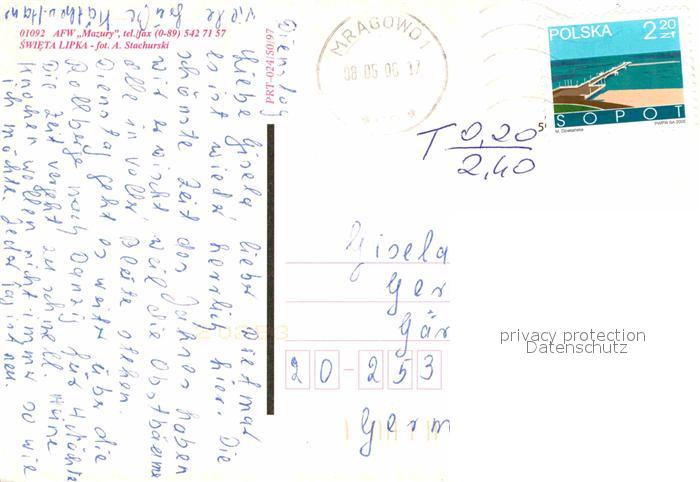 01092 AFW „Mazury", tel./fax (0-89) 542 71 57
ŚWIĘTA LIPKA - fot. A. Stachurski
PRT-024/50/97
Dienstag
Liebe Gisela lieber Dietmar
es ist wieder herrlich hier. Die
schönste Zeit des Jahres haben
wir erwischt weil die Obstbäume
alle in voller Blüte stehen.
Dienstag geht es weiter über die
nach Danzig für 4 Nächte
Die Zeit vergeht zu schnell. Meine
Knochen wollen nicht immer so wie
ich möchte. Jeder Tag ist neu.
Viele
MRĄGOWO 1
08 05 06 17
POLSKA 2,20 zł
SOPOT
PWPW SA 2005
T 0,20
2,40
Gisela
Ger
Gär
20-253
Germ
privacy protection
Datenschutz